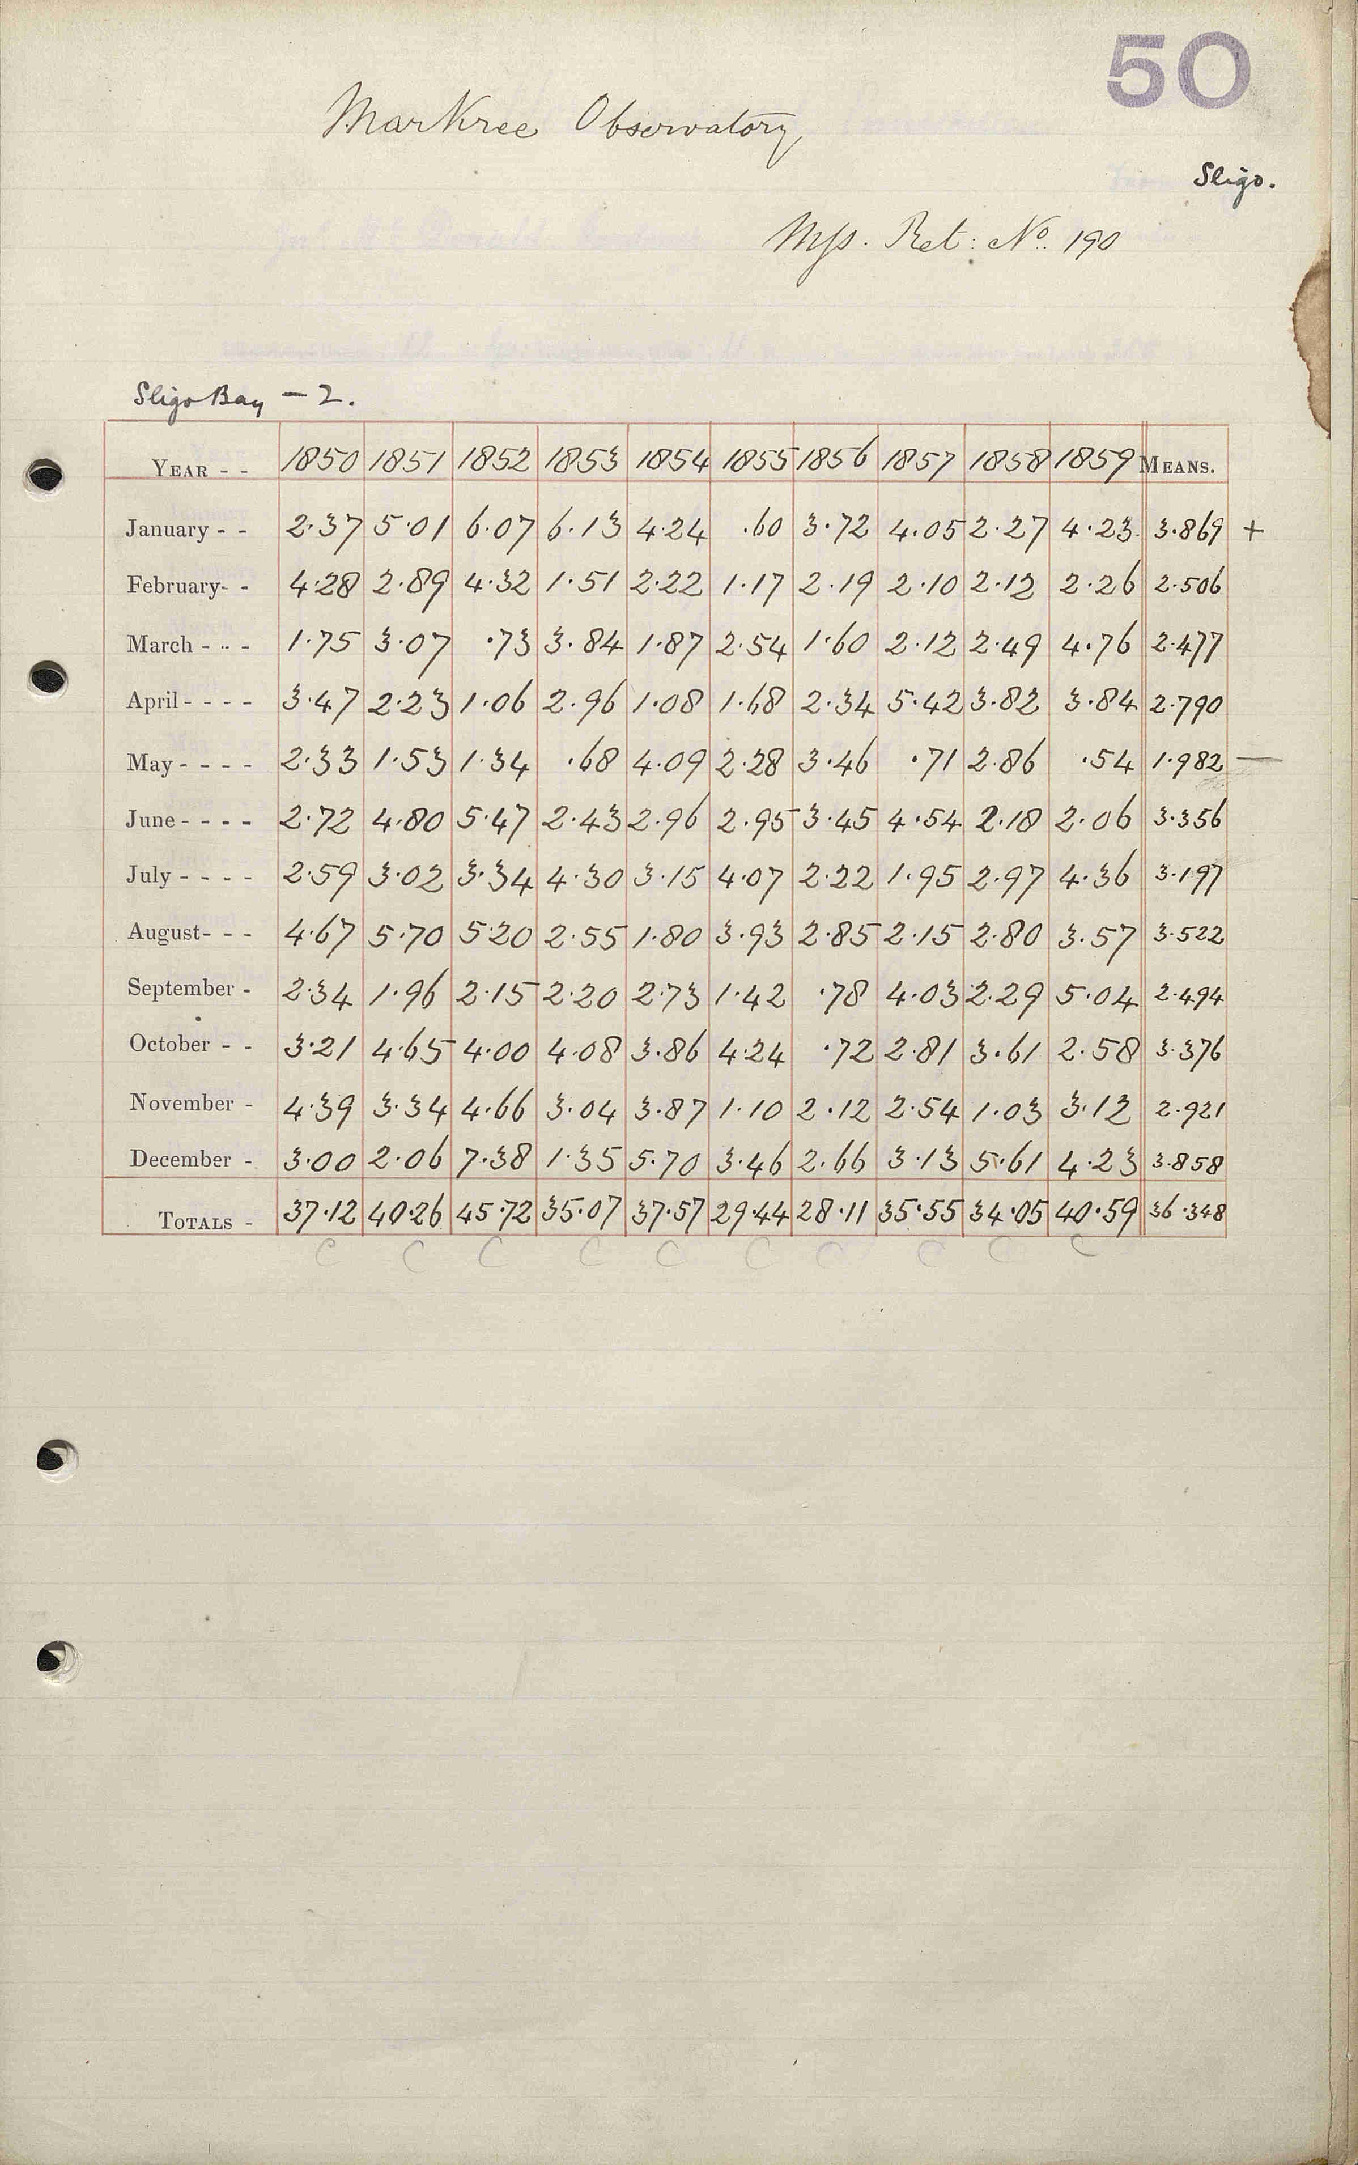 50
Markree Observatory
Sligo.
Mss. Ret: No. 190
Sligo Bay - 2.
YEAR - - 1850 1851 1852 1853 1854 1855 1856 1857 1858 1859 MEANS.
January - - 2.37 5.01 6.07 6.13 4.24 .60 3.72 4.05 2.27 4.23 3.869 +
February - - 4.28 2.89 4.32 1.51 2.22 1.17 2.19 2.10 2.12 2.26 2.506
March - - - 1.75 3.07 .73 3.84 1.87 2.54 1.60 2.12 2.49 4.76 2.477
April - - - - 3.47 2.23 1.06 2.96 1.08 1.68 2.34 5.42 3.82 3.84 2.790
May - - - - 2.33 1.53 1.34 .68 4.09 2.28 3.46 .71 2.86 .54 1.982 —
June - - - - 2.72 4.80 5.47 2.43 2.96 2.95 3.45 4.54 2.18 2.06 3.356
July - - - - 2.59 3.02 3.34 4.30 3.15 4.07 2.22 1.95 2.97 4.36 3.197
August - - - 4.67 5.70 5.20 2.55 1.80 3.93 2.85 2.15 2.80 3.57 3.522
September - 2.34 1.96 2.15 2.20 2.73 1.42 .78 4.03 2.29 5.04 2.494
October - - 3.21 4.65 4.00 4.08 3.86 4.24 .72 2.81 3.61 2.58 3.376
November - 4.39 3.34 4.66 3.04 3.87 1.10 2.12 2.54 1.03 3.12 2.921
December - 3.00 2.06 7.38 1.35 5.70 3.46 2.66 3.13 5.61 4.23 3.858
TOTALS - 37.12 40.26 45.72 35.07 37.57 29.44 28.11 35.55 34.05 40.59 36.348
C C C C C C C C C C